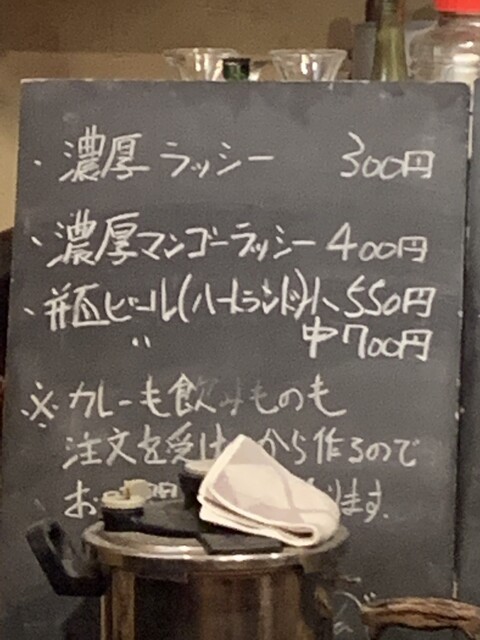 ・濃厚ラッシー 300円
・濃厚マンゴーラッシー 400円
・瓶ビール(ハートランド)小 550円
〃 中 700円
※カレーも飲みものも
注文を受け から作るので
お ります。